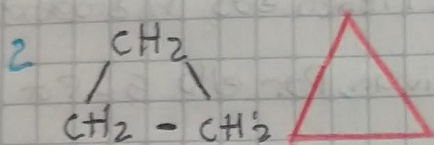 2 CH2
CH2 - CH2